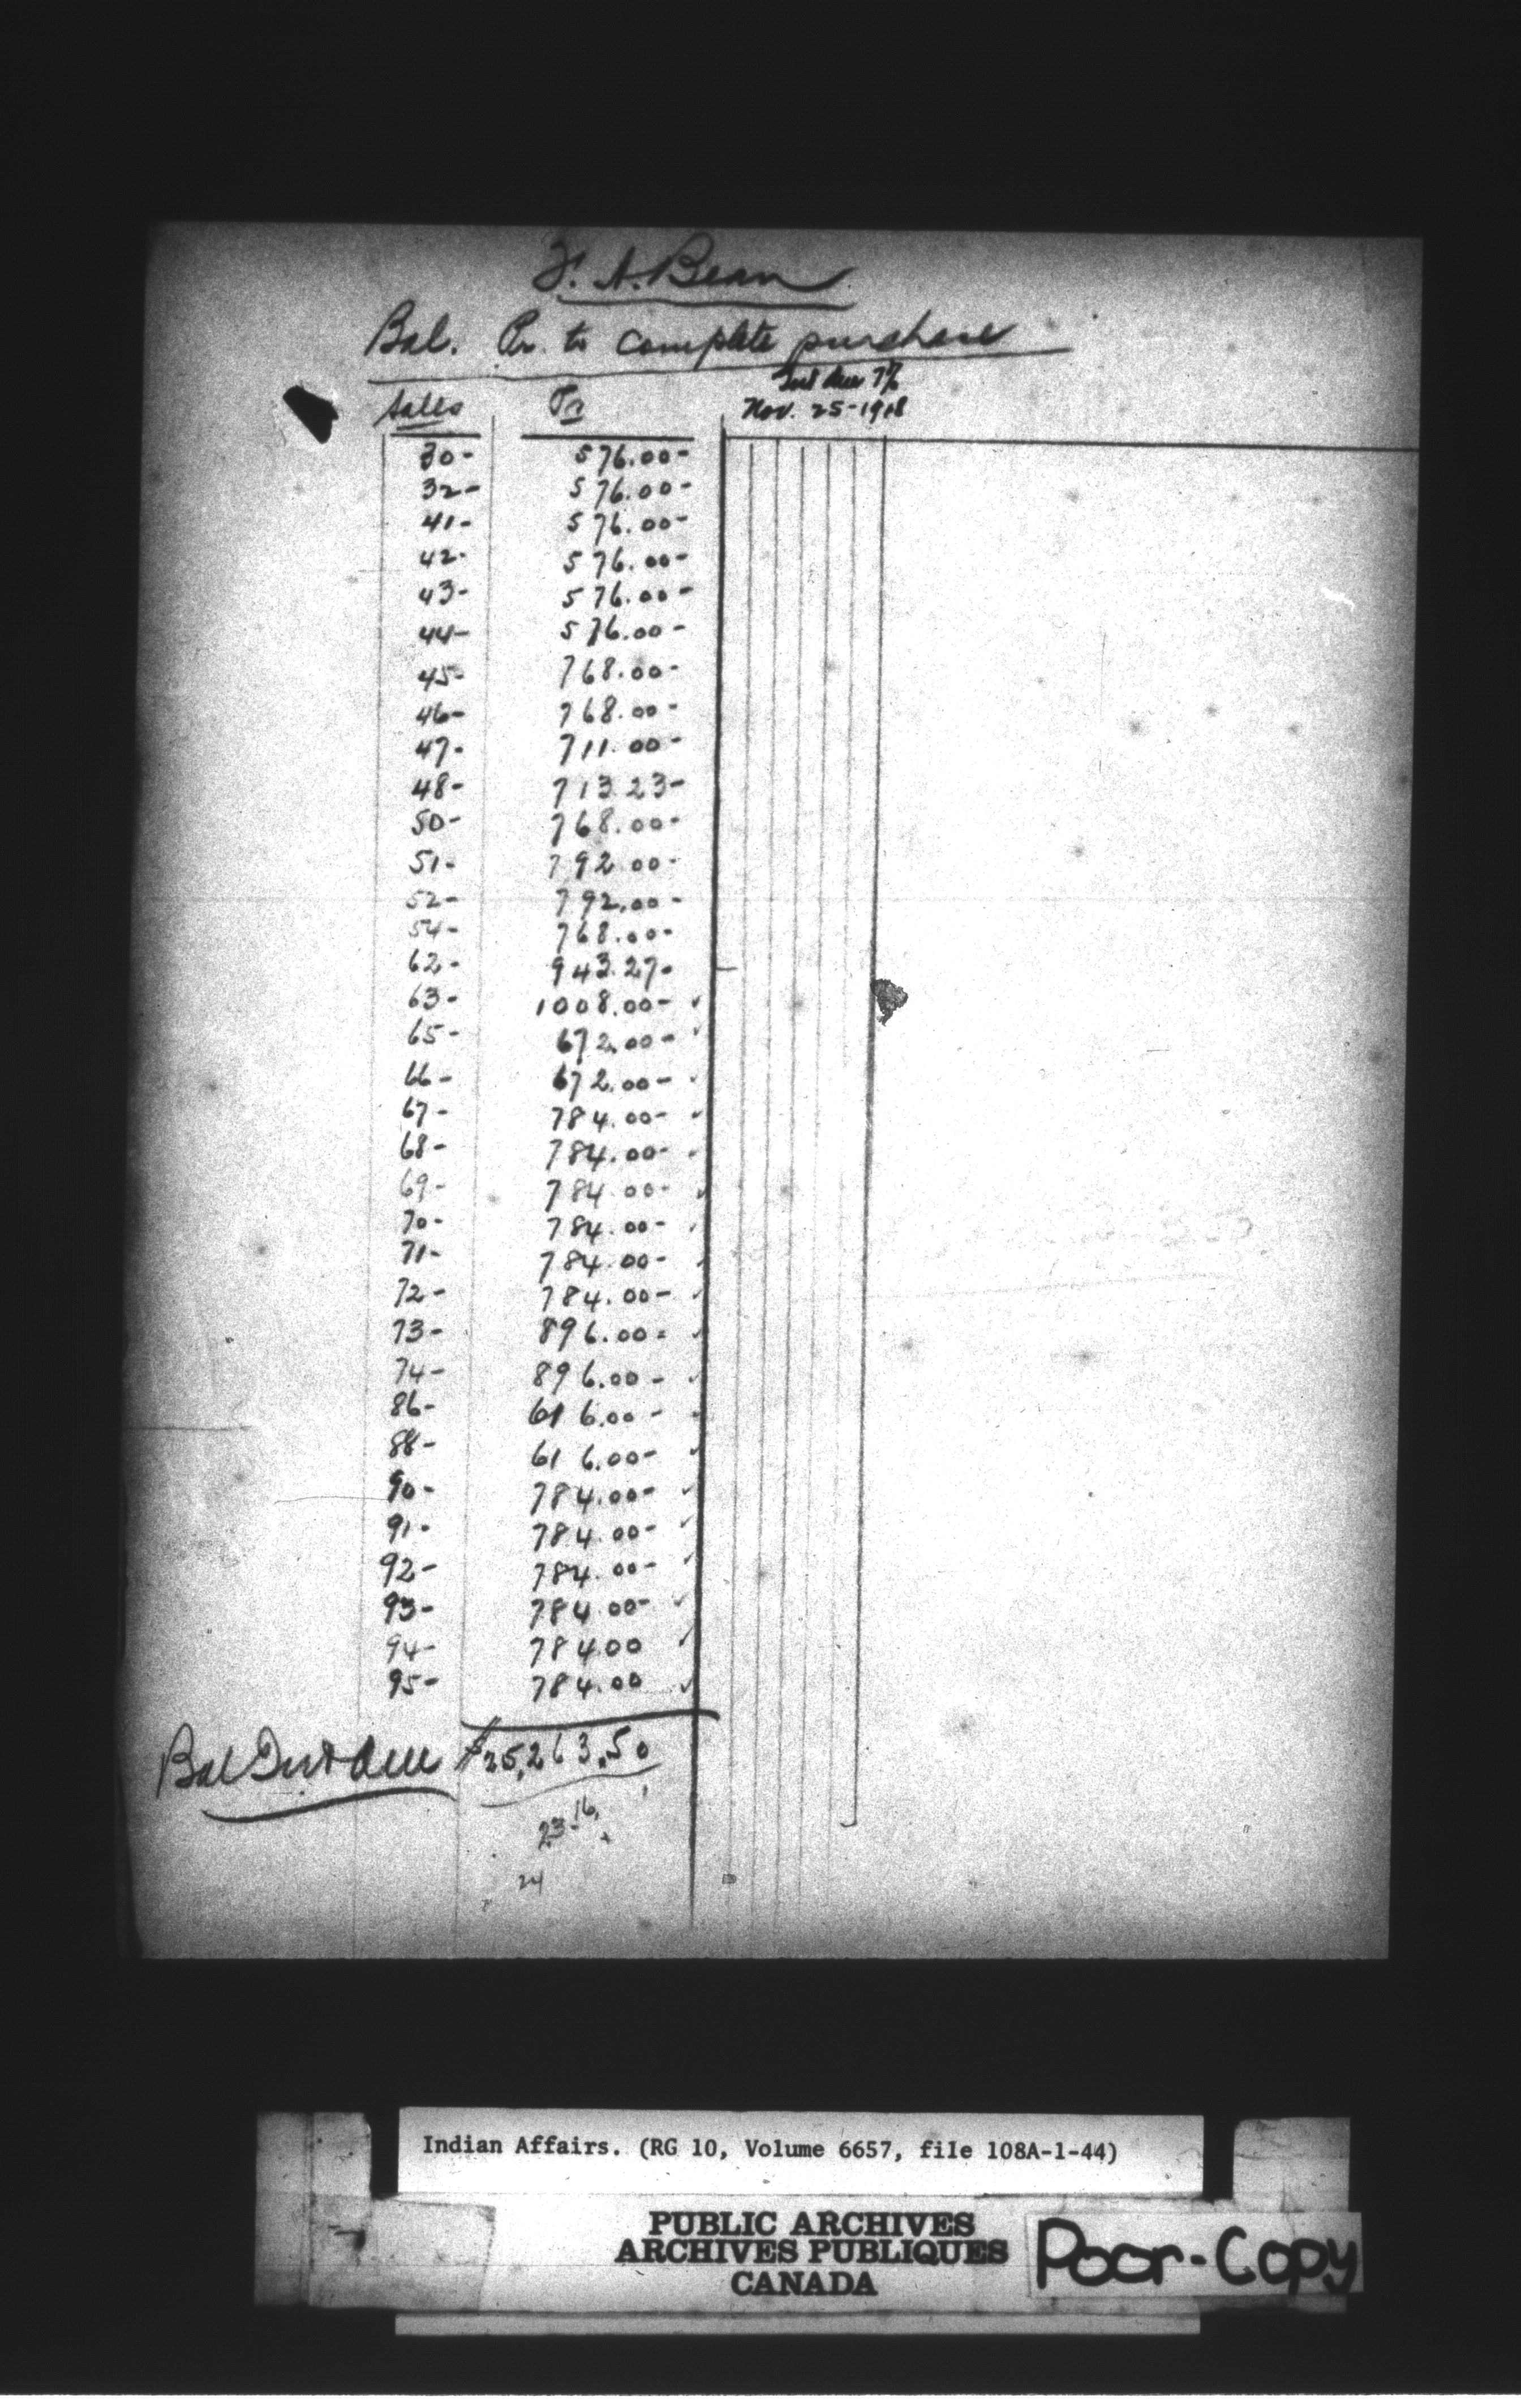 F. A. Bean
Bal. Pr. to complete purchase
Int due 7%
Sales Pr Nov. 25-1918
30- 576.00-
32- 576.00-
41- 576.00-
42- 576.00-
43- 576.00-
44- 576.00-
45- 768.00-
46- 768.00-
47- 711.00-
48- 713.23-
50- 768.00-
51- 792.00-
52- 792.00-
54- 768.00-
62- 943.27-
63- 1008.00- ✓
65- 672.00- ✓
66- 672.00- ✓
67- 784.00- ✓
68- 784.00- ✓
69- 784.00- ✓
70- 784.00- ✓
71- 784.00- ✓
72- 784.00- ✓
73- 896.00- ✓
74- 896.00- ✓
86- 616.00- ✓
88- 616.00- ✓
90- 784.00- ✓
91- 784.00- ✓
92- 784.00- ✓
93- 784.00- ✓
94- 784.00 ✓
95- 784.00 ✓
Bal Int due $25,263.50
23-16
24
Indian Affairs. (RG 10, Volume 6657, file 108A-1-44)
PUBLIC ARCHIVES
ARCHIVES PUBLIQUES
CANADA
Poor-Copy